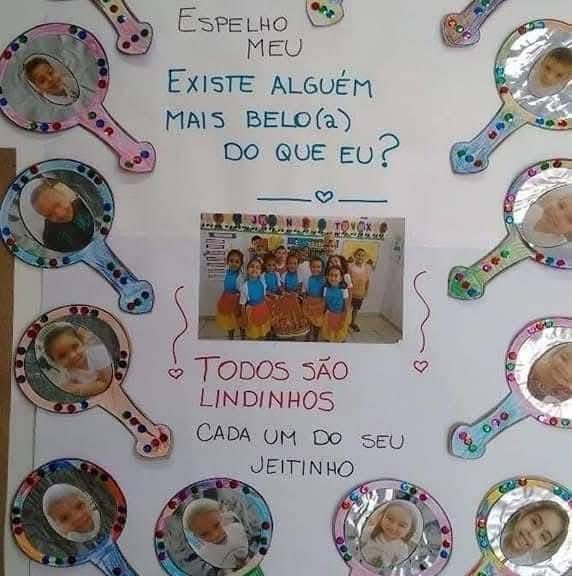 ESPELHO
MEU
EXISTE ALGUÉM
MAIS BELO(a)
DO QUE EU?
TODOS SÃO
LINDINHOS
CADA UM DO SEU
JEITINHO